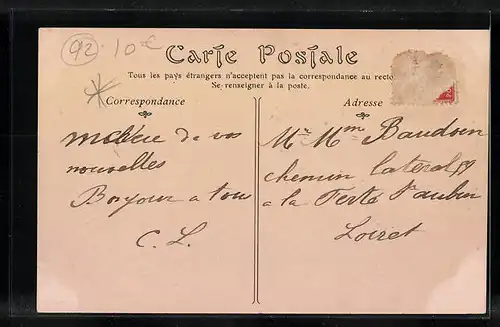 92 10€
Carte Postale
Tous les pays étrangers n'acceptent pas la correspondance au recto
Se renseigner à la poste.
Correspondance
Adresse
de vos
nouvelles
Bonjour a tous
C. L.
Mr Mm Baudoin
chemin lateral
a la Ferte St aubin
Loiret